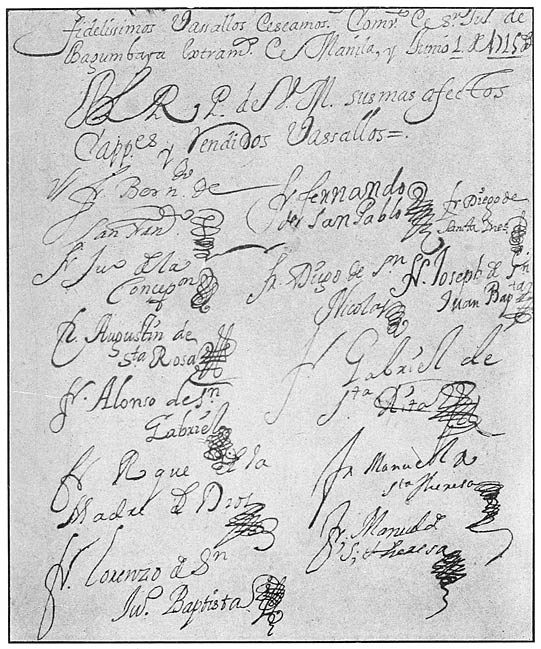 fidelissimos Vassallos Deseamos. Conv.to de Sn Jul. de
Bagumbaya extram.s de Manila, y Junio
B L R P. de V. M. sus mas afectos
Capp.es y Rendidos Vassallos=.
Fr. Bern.do de
San Nan.do
Fr. fernando
de San Pablo
fr Diego de
Santa Ines
Fr Ju.o de la
Concepon
Fr. Diego de Sn
Nicolas
Fr. Joseph de Sn
Juan Bapta
Fr. Augustin de
Sta Rosa
Fr Gabriel de
Sta Rita
Fr. Alonso de Sn
Gabriel
Fr Roque de la
Madre de Dios
Fr Manuel de
Sta Theresa
Fr. Manuel de
S, theresa
Fr. Lorenzo de Sn
Ju.o Baptista